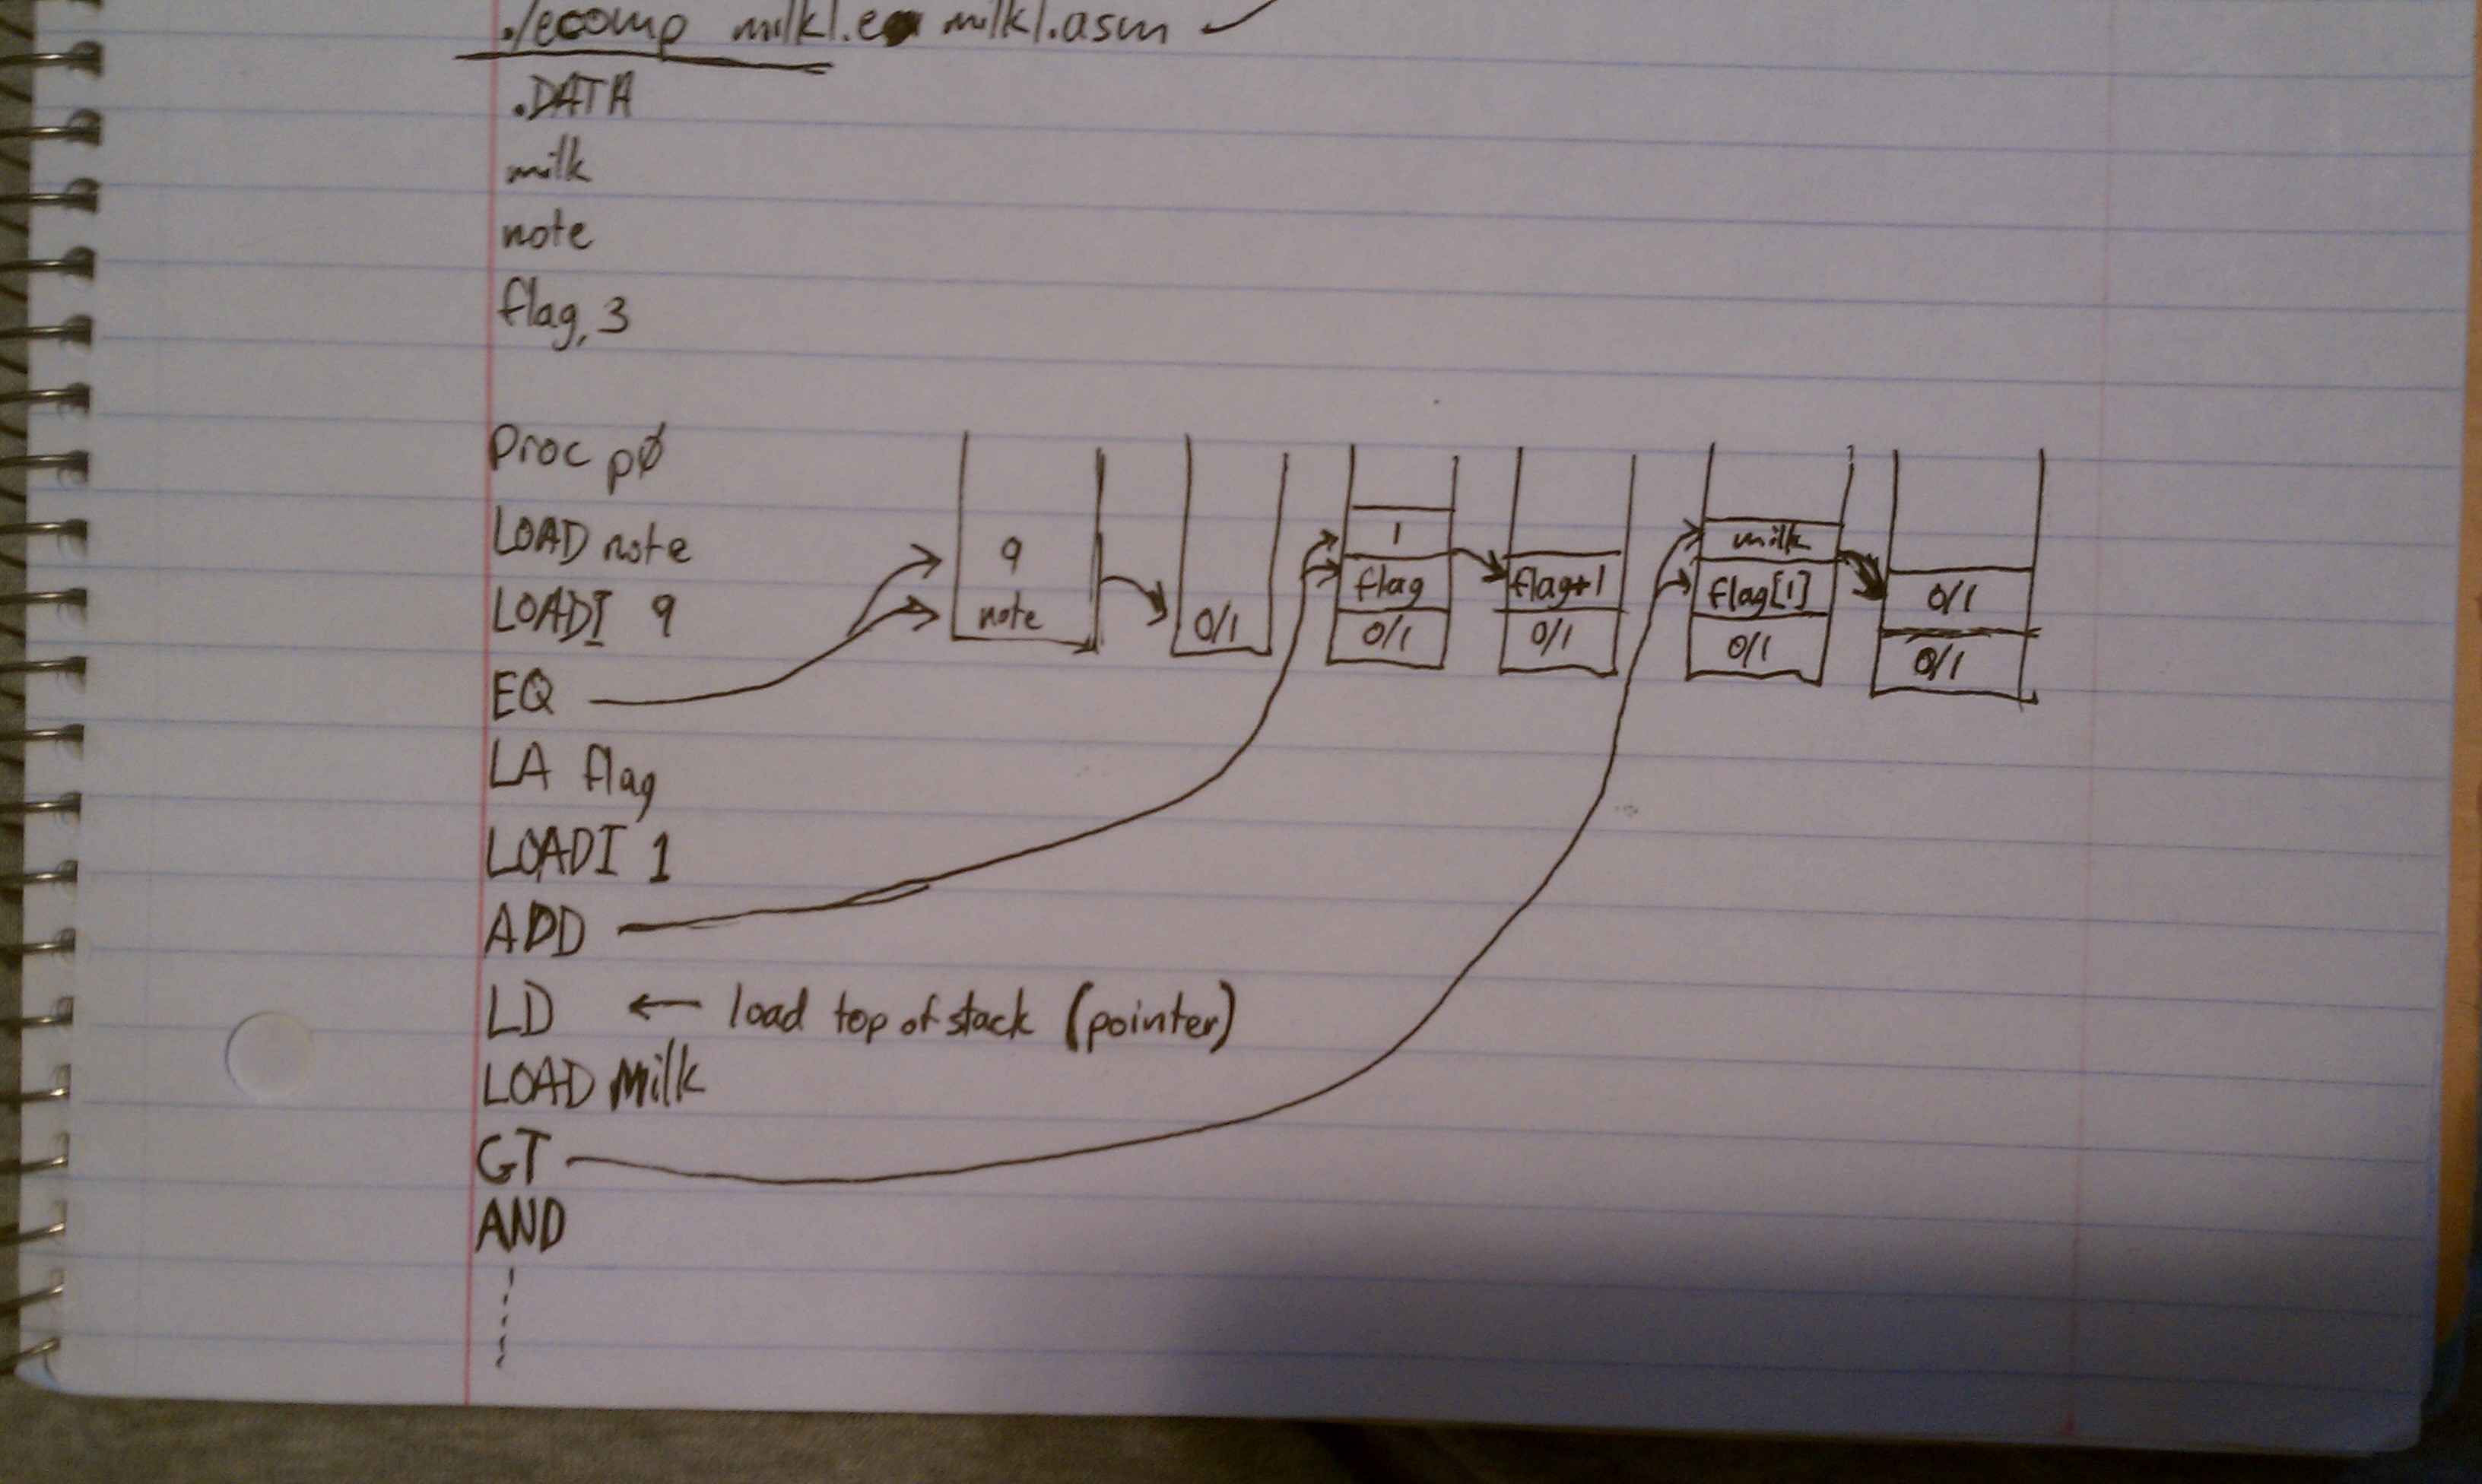 ./ecomp milk1.e milk1.asm
.DATA
milk
note
flag, 3
Proc pØ
LOAD note
LOADI 9
EQ
LA flag
LOADI 1
ADD
LD ← load top of stack (pointer)
LOAD Milk
GT
AND
9
note
0/1
1
flag
0/1
flag+1
0/1
milk
flag[1]
0/1
0/1
0/1